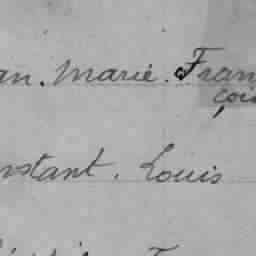 an. Marie. Fran
çoi
nstant. Louis